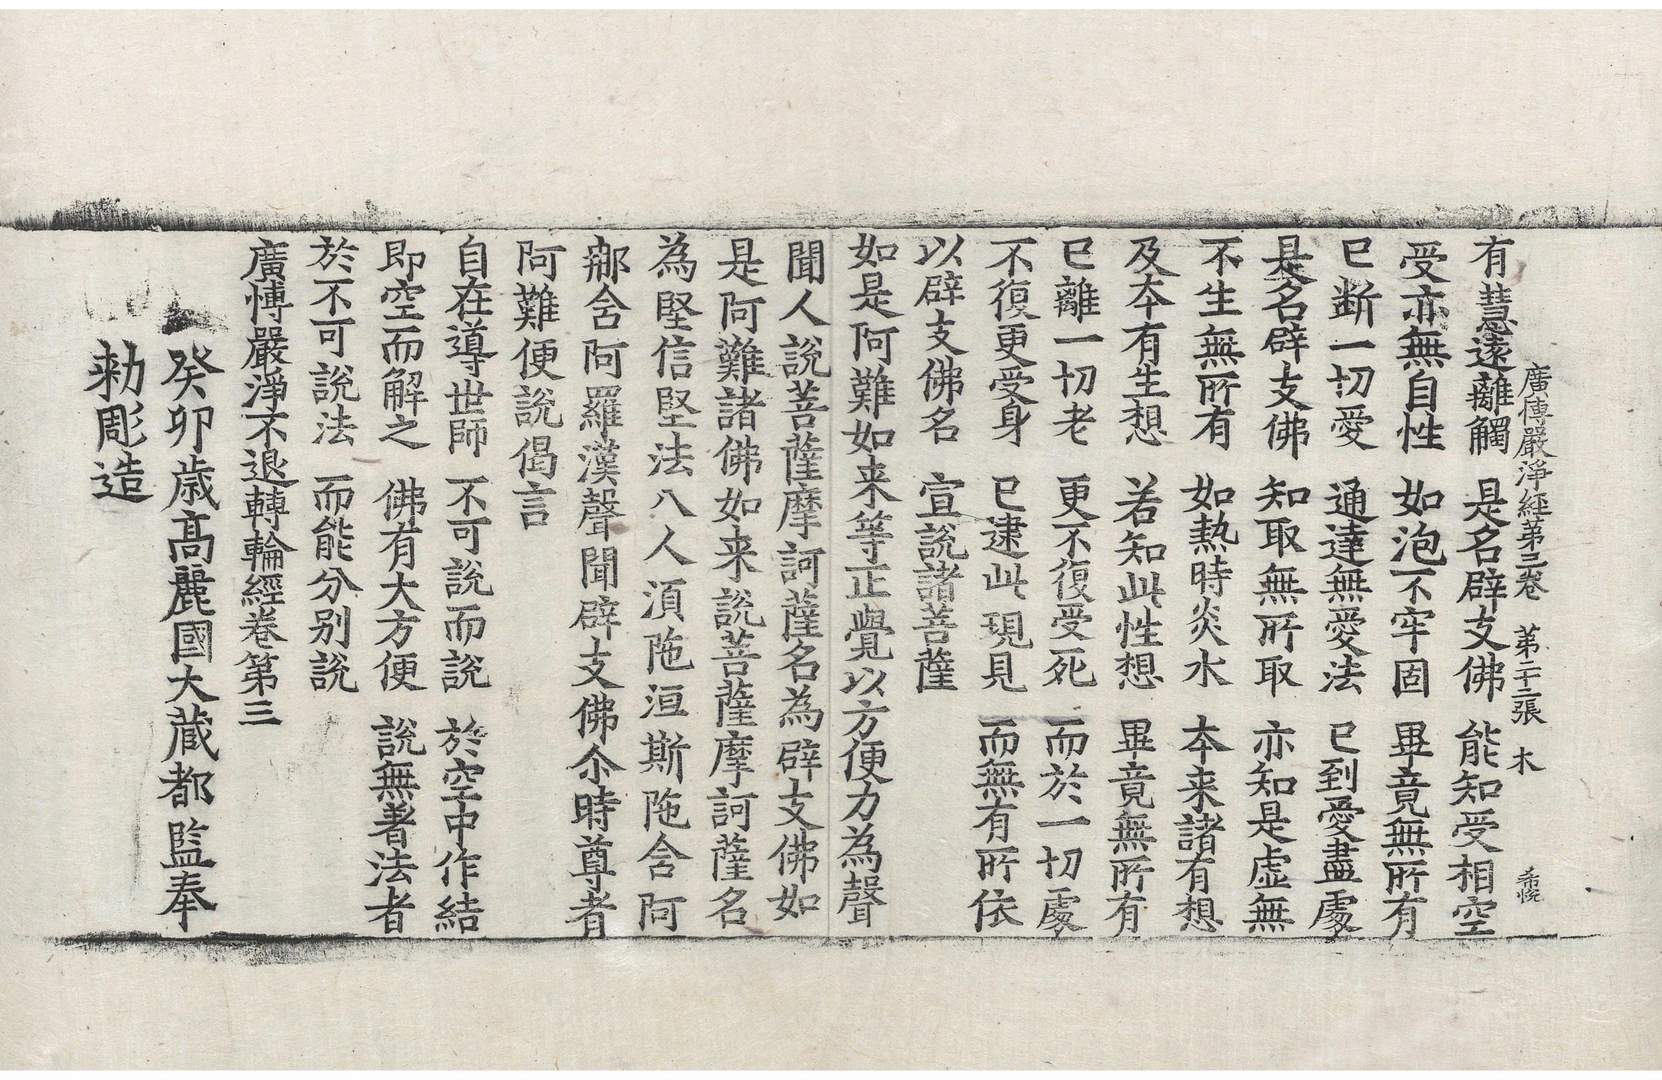 廣博嚴淨經第三卷 第二十二張 木
有慧遠離觸 是名辟支佛 能知受相空
受亦無自性 如泡不牢固 畢竟無所有
已斷一切愛 通達無愛法 已到愛盡處
是名辟支佛 知取無所取 亦知是虛無
不生無所有 如熱時炎水 本来諸有想
及本有生想 若知此性想 畢竟無所有
已離一切老 更不復受死 而於一切處
不復更受身 已逮此現見 而無有所依
以辟支佛名 宣說諸菩薩
如是阿難如来等正覺以方便力為聲
聞人說菩薩摩訶薩名為辟支佛如
是阿難諸佛如来說菩薩摩訶薩名
為堅信堅法八人須陁洹斯陁含阿
那含阿羅漢聲聞辟支佛尒時尊者
阿難便說偈言
自在導世師 不可說而說 於空中作結
即空而解之 佛有大方便 說無著法者
於不可說法 而能分別說
廣博嚴淨不退轉輪經卷第三
癸卯歲高麗國大藏都監奉
勅彫造